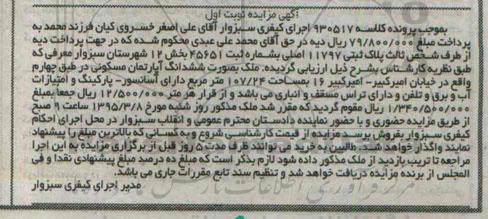 آگهی مزایده نوبت اول
بموجب پرونده کلاسه ۹۳۰۵۱۷ اجرای کیفری سبزوار آقای علی اصغر خسروی کیان فرزند محمد به
پرداخت مبلغ ۷۹/۸۰۰/۰۰۰ ریال دیه در حق آقای محمد علی عبدی محکوم شده که در جهت پرداخت دیه
از طرف شخص ثالث پلاک ثبتی ۱۱۷۹۷ اصلی بشماره ثبت ۴۵۶۵۱ بخش ۱۲ شهرستان سبزوار معرفی که
طبق نظریه کارشناس بشرح ذیل ارزیابی گردیده. ملک بصورت ششدانگ آپارتمان مسکونی در طبق چهارم
واقع در خیابان امیرکبیر - امیرکبیر ۱۶ بمساحت ۱۰۷/۲۴ متر مربع دارای آسانسور- پارکینگ و امتیازات
آب و برق و تلفن و دارای تراس مسقف و انباری می باشد و از قرار هر متر ۱۲/۵۰۰/۰۰۰ ریال جمعا بمبلغ
۱/۳۴۰/۵۰۰/۰۰۰ ریال مقوم گردید که مقرر شد ملک مذکور روز شنبه مورخ ۱۳۹۵/۳/۸ ساعت ۹ صبح
از طریق مزایده حضوری و با حضور نماینده دادستان محترم عمومی و انقلاب سبزوار در محل اجرای احکام
کیفری سبزوار بفروش برسد مزایده از قیمت کارشناسی شروع و به کسانی که بالاترین مبلغ را پیشنهاد
نمایند واگذار خواهد شد. طالبین به خرید می توانند ظرف مدت ۵ روز قبل از برگزاری مزایده به این اجرا
مراجعه تا ترتیب بازدید از ملک مذکور داده شود لازم بذکر است که مبلغ ده درصد مبلغ پیشنهادی نقدا و فی
المجلس از برنده مزایده دریافت خواهد شد و تنظیم سند تابع مقررات جاری می باشد.
مدیر اجرای کیفری سبزوار